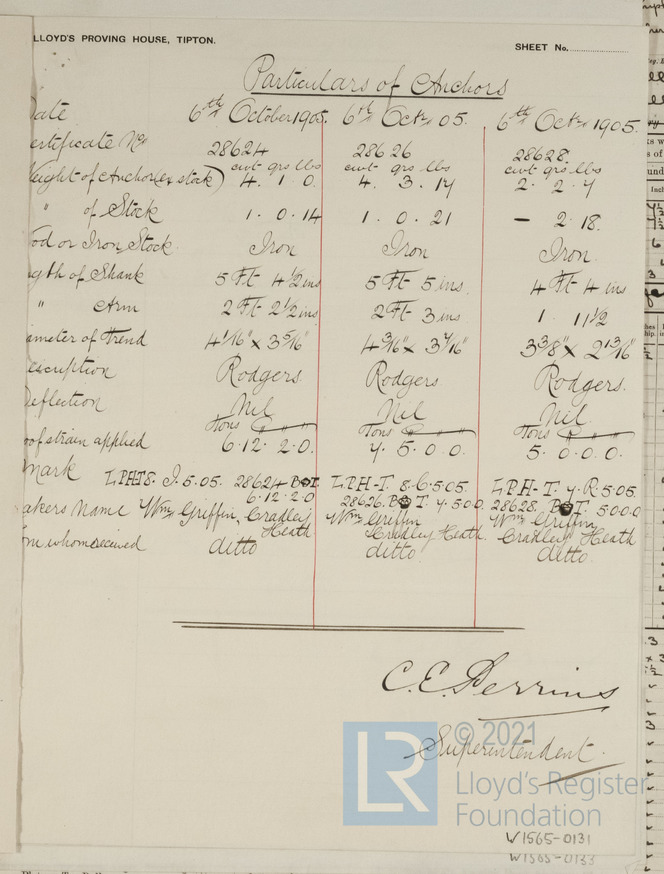 LLOYD'S PROVING HOUSE, TIPTON.
SHEET No.
Particulars of Anchors
ate 6th October 1905. 6th Octr. 05. 6th Octr. 1905.
ertificate Nos 28624 28626 28628.
cwt qrs lbs cwt qrs lbs cwt qrs lbs
eight of Anchor (ex stock) 4. 1. 0. 4. 3. 14 2. 2. 4
" of Stock 1. 0. 14 1. 0. 21 — 2. 18.
od or Iron Stock Iron Iron Iron.
gth of Shank 5 Ft 4½ ins 5 Ft 5 ins. 4 Ft 4 ins
" Arm 2 Ft 2½ ins 2 Ft 3 ins 1. 11½
ameter of Trend 4 1/16" x 3 5/16" 4 3/16" x 3 7/16" 3 3/8" x 2 13/16"
escription Rodgers. Rodgers Rodgers.
eflection Nil Nil Nil.
Tons C " " Tons C " " Tons C " "
oof strain applied 6. 12. 2. 0. 7. 5. 0. 0. 5. 0. 0. 0.
Mark L.P.H-T 8. J. 5. 05. 28624 B T. L.P.H-T. 8. 6. 5. 05. L.P.H-T. 7. R. 5. 05.
6. 12. 2. 0 28626. B T. 7. 5. 0. 0. 28628. B T. 5. 0. 0. 0
akers Name Wm. Griffin, Cradley Heath Wm. Griffin Cradley Heath. Wm. Griffin, Cradley Heath
om whom received ditto ditto. ditto.
C. E. Perrins
Superintendent.
© 2021
LR
Lloyd's Register
Foundation
W1565-0131
W1565-0133